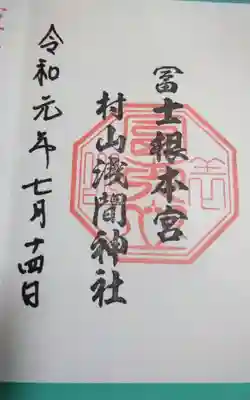 冨士根本宮
村山浅間神社
令和元年七月十四日